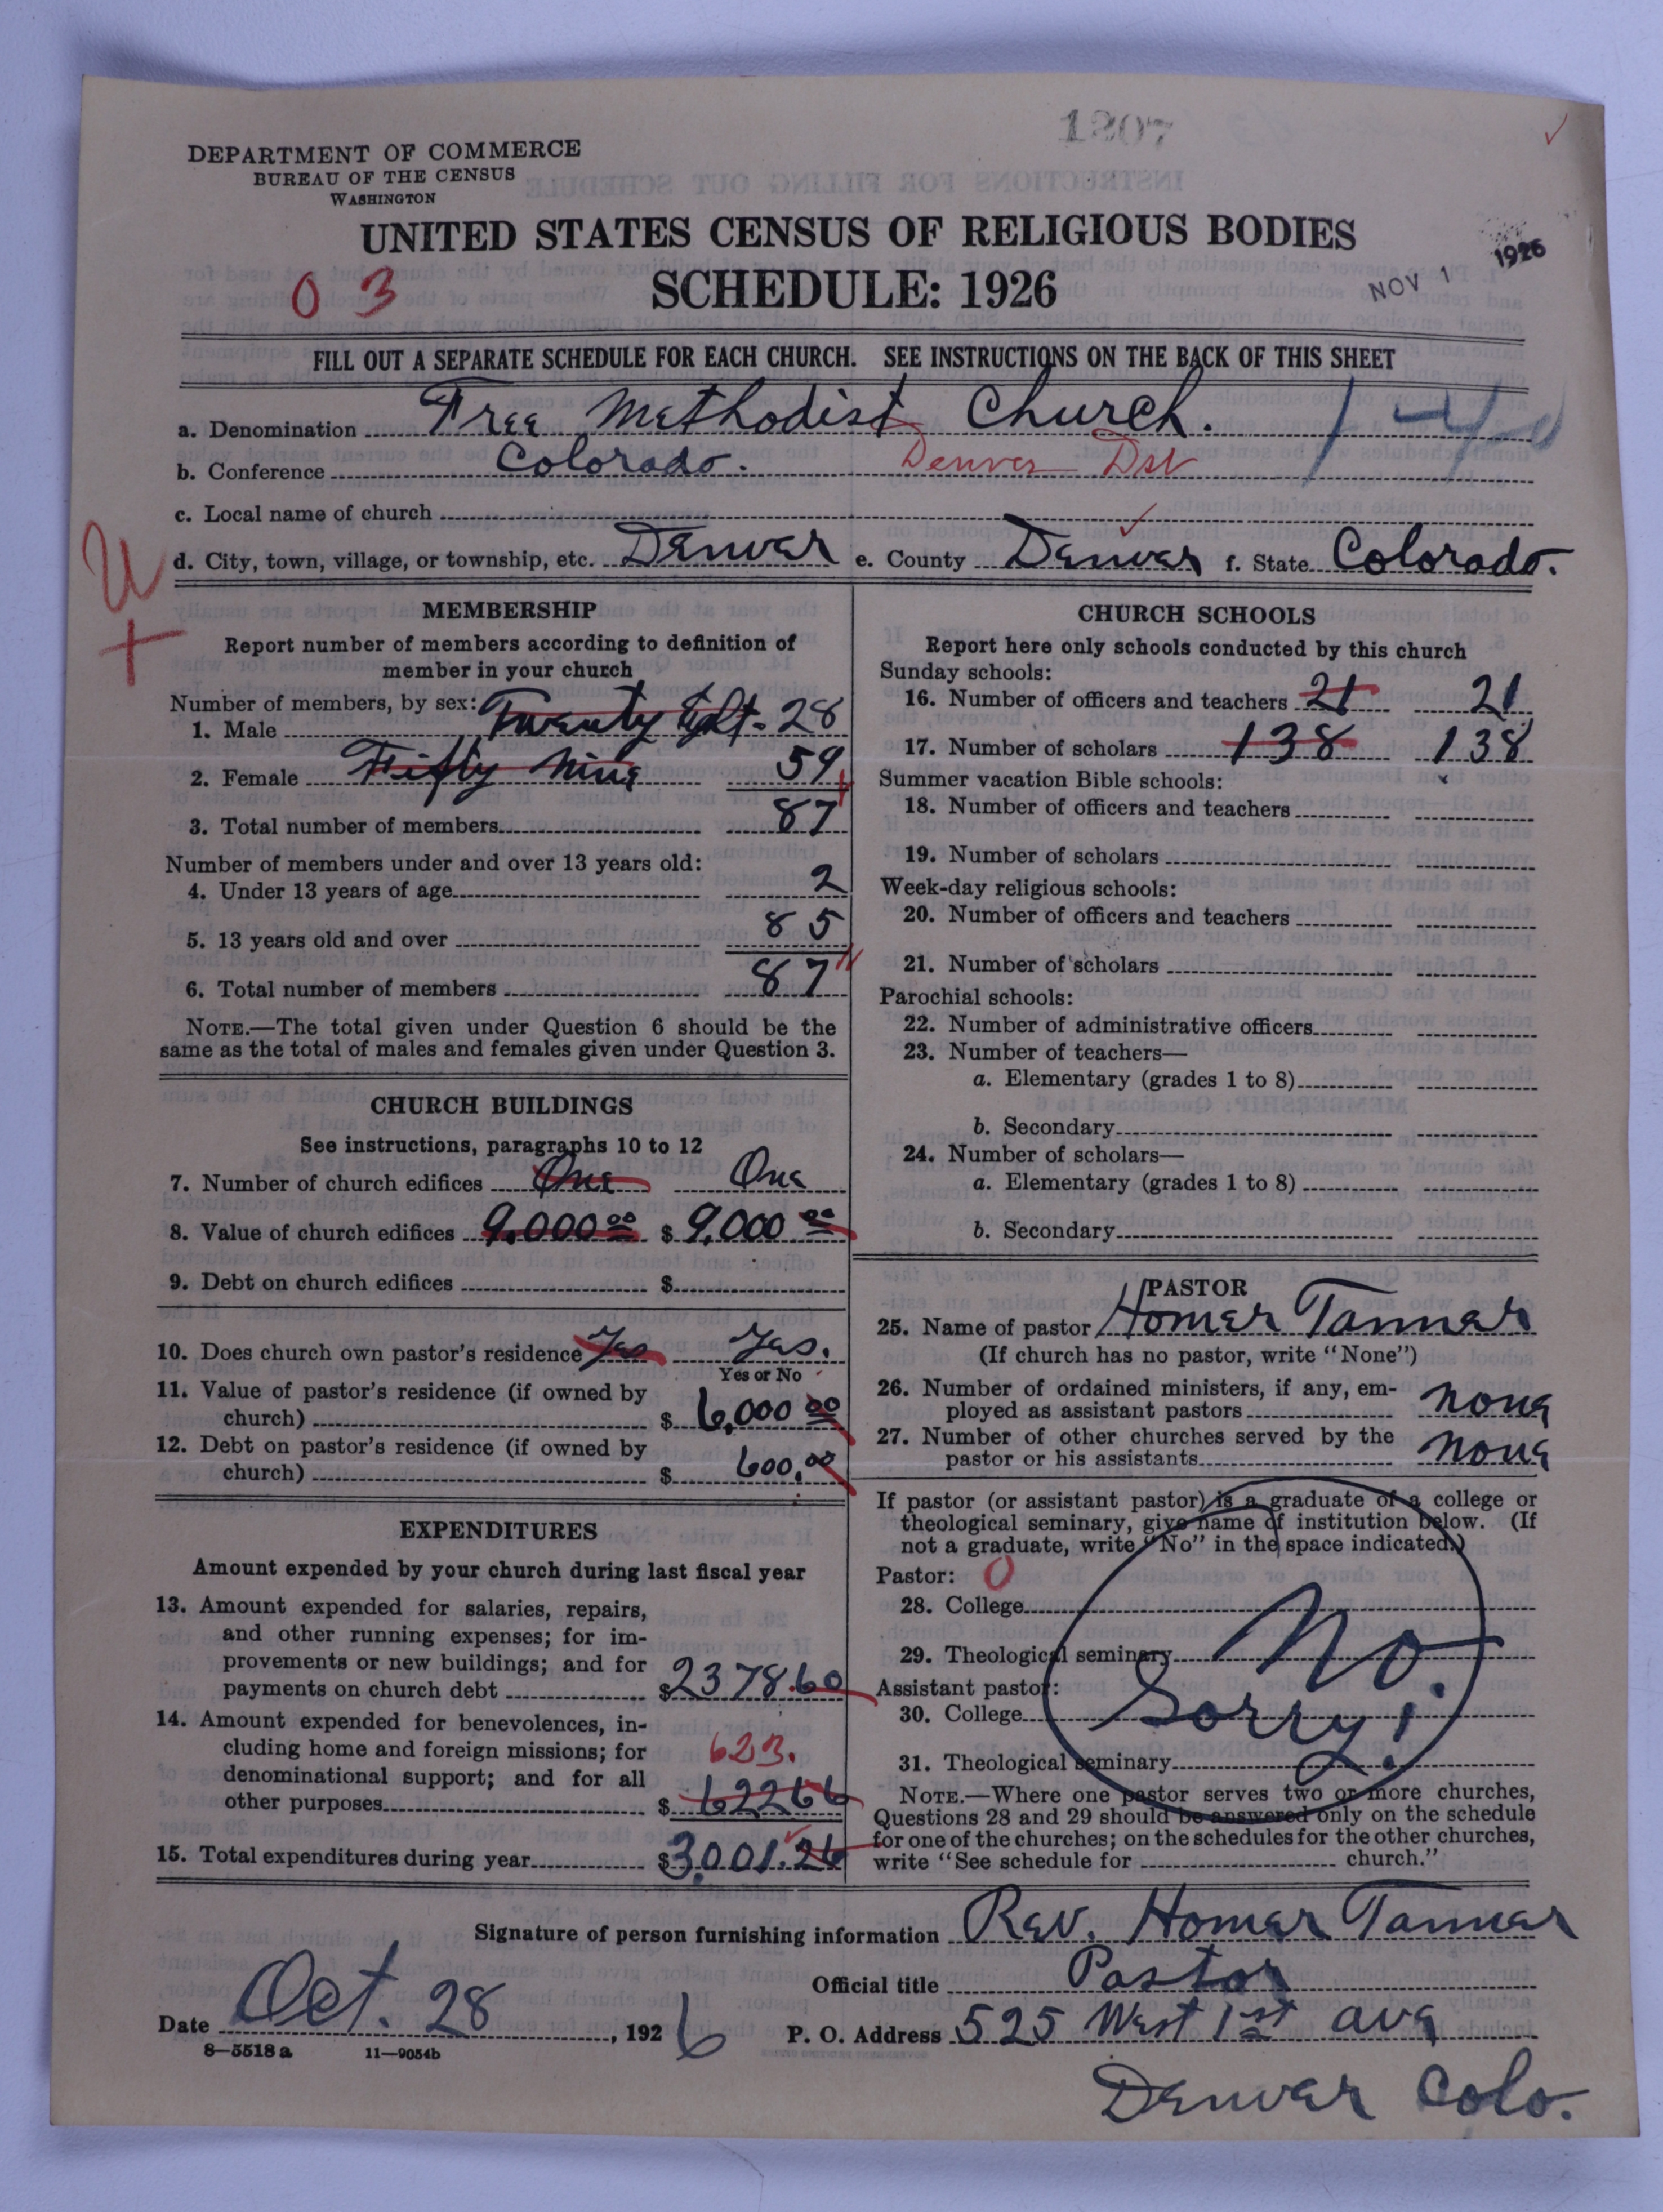 1207
DEPARTMENT OF COMMERCE
BUREAU OF THE CENSUS
WASHINGTON
UNITED STATES CENSUS OF RELIGIOUS BODIES
SCHEDULE: 1926
0 3
NOV 1 1926
FILL OUT A SEPARATE SCHEDULE FOR EACH CHURCH. SEE INSTRUCTIONS ON THE BACK OF THIS SHEET
a. Denomination Free Methodist Church.
b. Conference Colorado. Denver Dst
c. Local name of church
d. City, town, village, or township, etc. Denver e. County Denver f. State Colorado.
U
MEMBERSHIP
Report number of members according to definition of
member in your church
Number of members, by sex:
1. Male Twenty Eght - 28
2. Female Fifty Nine 59
3. Total number of members 87
Number of members under and over 13 years old:
4. Under 13 years of age 2
5. 13 years old and over 85
6. Total number of members 87
NOTE.—The total given under Question 6 should be the
same as the total of males and females given under Question 3.
CHURCH BUILDINGS
See instructions, paragraphs 10 to 12
7. Number of church edifices One One
8. Value of church edifices 9,000 00 $ 9,000 00
9. Debt on church edifices $
10. Does church own pastor's residence Yes Yes.
Yes or No
11. Value of pastor's residence (if owned by
church) $ 6,000 00
12. Debt on pastor's residence (if owned by
church) $ 600.00
EXPENDITURES
Amount expended by your church during last fiscal year
13. Amount expended for salaries, repairs,
and other running expenses; for im-
provements or new buildings; and for
payments on church debt $2378.60
14. Amount expended for benevolences, in-
cluding home and foreign missions; for 623.
denominational support; and for all
other purposes $ 62266
15. Total expenditures during year $3,001.26
CHURCH SCHOOLS
Report here only schools conducted by this church
Sunday schools:
16. Number of officers and teachers 21 21
17. Number of scholars 138 138
Summer vacation Bible schools:
18. Number of officers and teachers
19. Number of scholars
Week-day religious schools:
20. Number of officers and teachers
21. Number of scholars
Parochial schools:
22. Number of administrative officers
23. Number of teachers—
a. Elementary (grades 1 to 8)
b. Secondary
24. Number of scholars—
a. Elementary (grades 1 to 8)
b. Secondary
PASTOR
25. Name of pastor Homer Tanner
(If church has no pastor, write "None")
26. Number of ordained ministers, if any, em-
ployed as assistant pastors none
27. Number of other churches served by the
pastor or his assistants none
If pastor (or assistant pastor) is a graduate of a college or
theological seminary, give name of institution below. (If
not a graduate, write "No" in the space indicated.)
Pastor: 0
28. College
29. Theological seminary No.
Assistant pastor:
30. College Sorry!
31. Theological seminary
NOTE.—Where one pastor serves two or more churches,
Questions 28 and 29 should be answered only on the schedule
for one of the churches; on the schedules for the other churches,
write "See schedule for church."
Signature of person furnishing information Rev. Homer Tanner
Official title Pastor
Date Oct. 28, 1926 P. O. Address 525 West 1st ave
8—5518 a 11—9054b
Denver Colo.